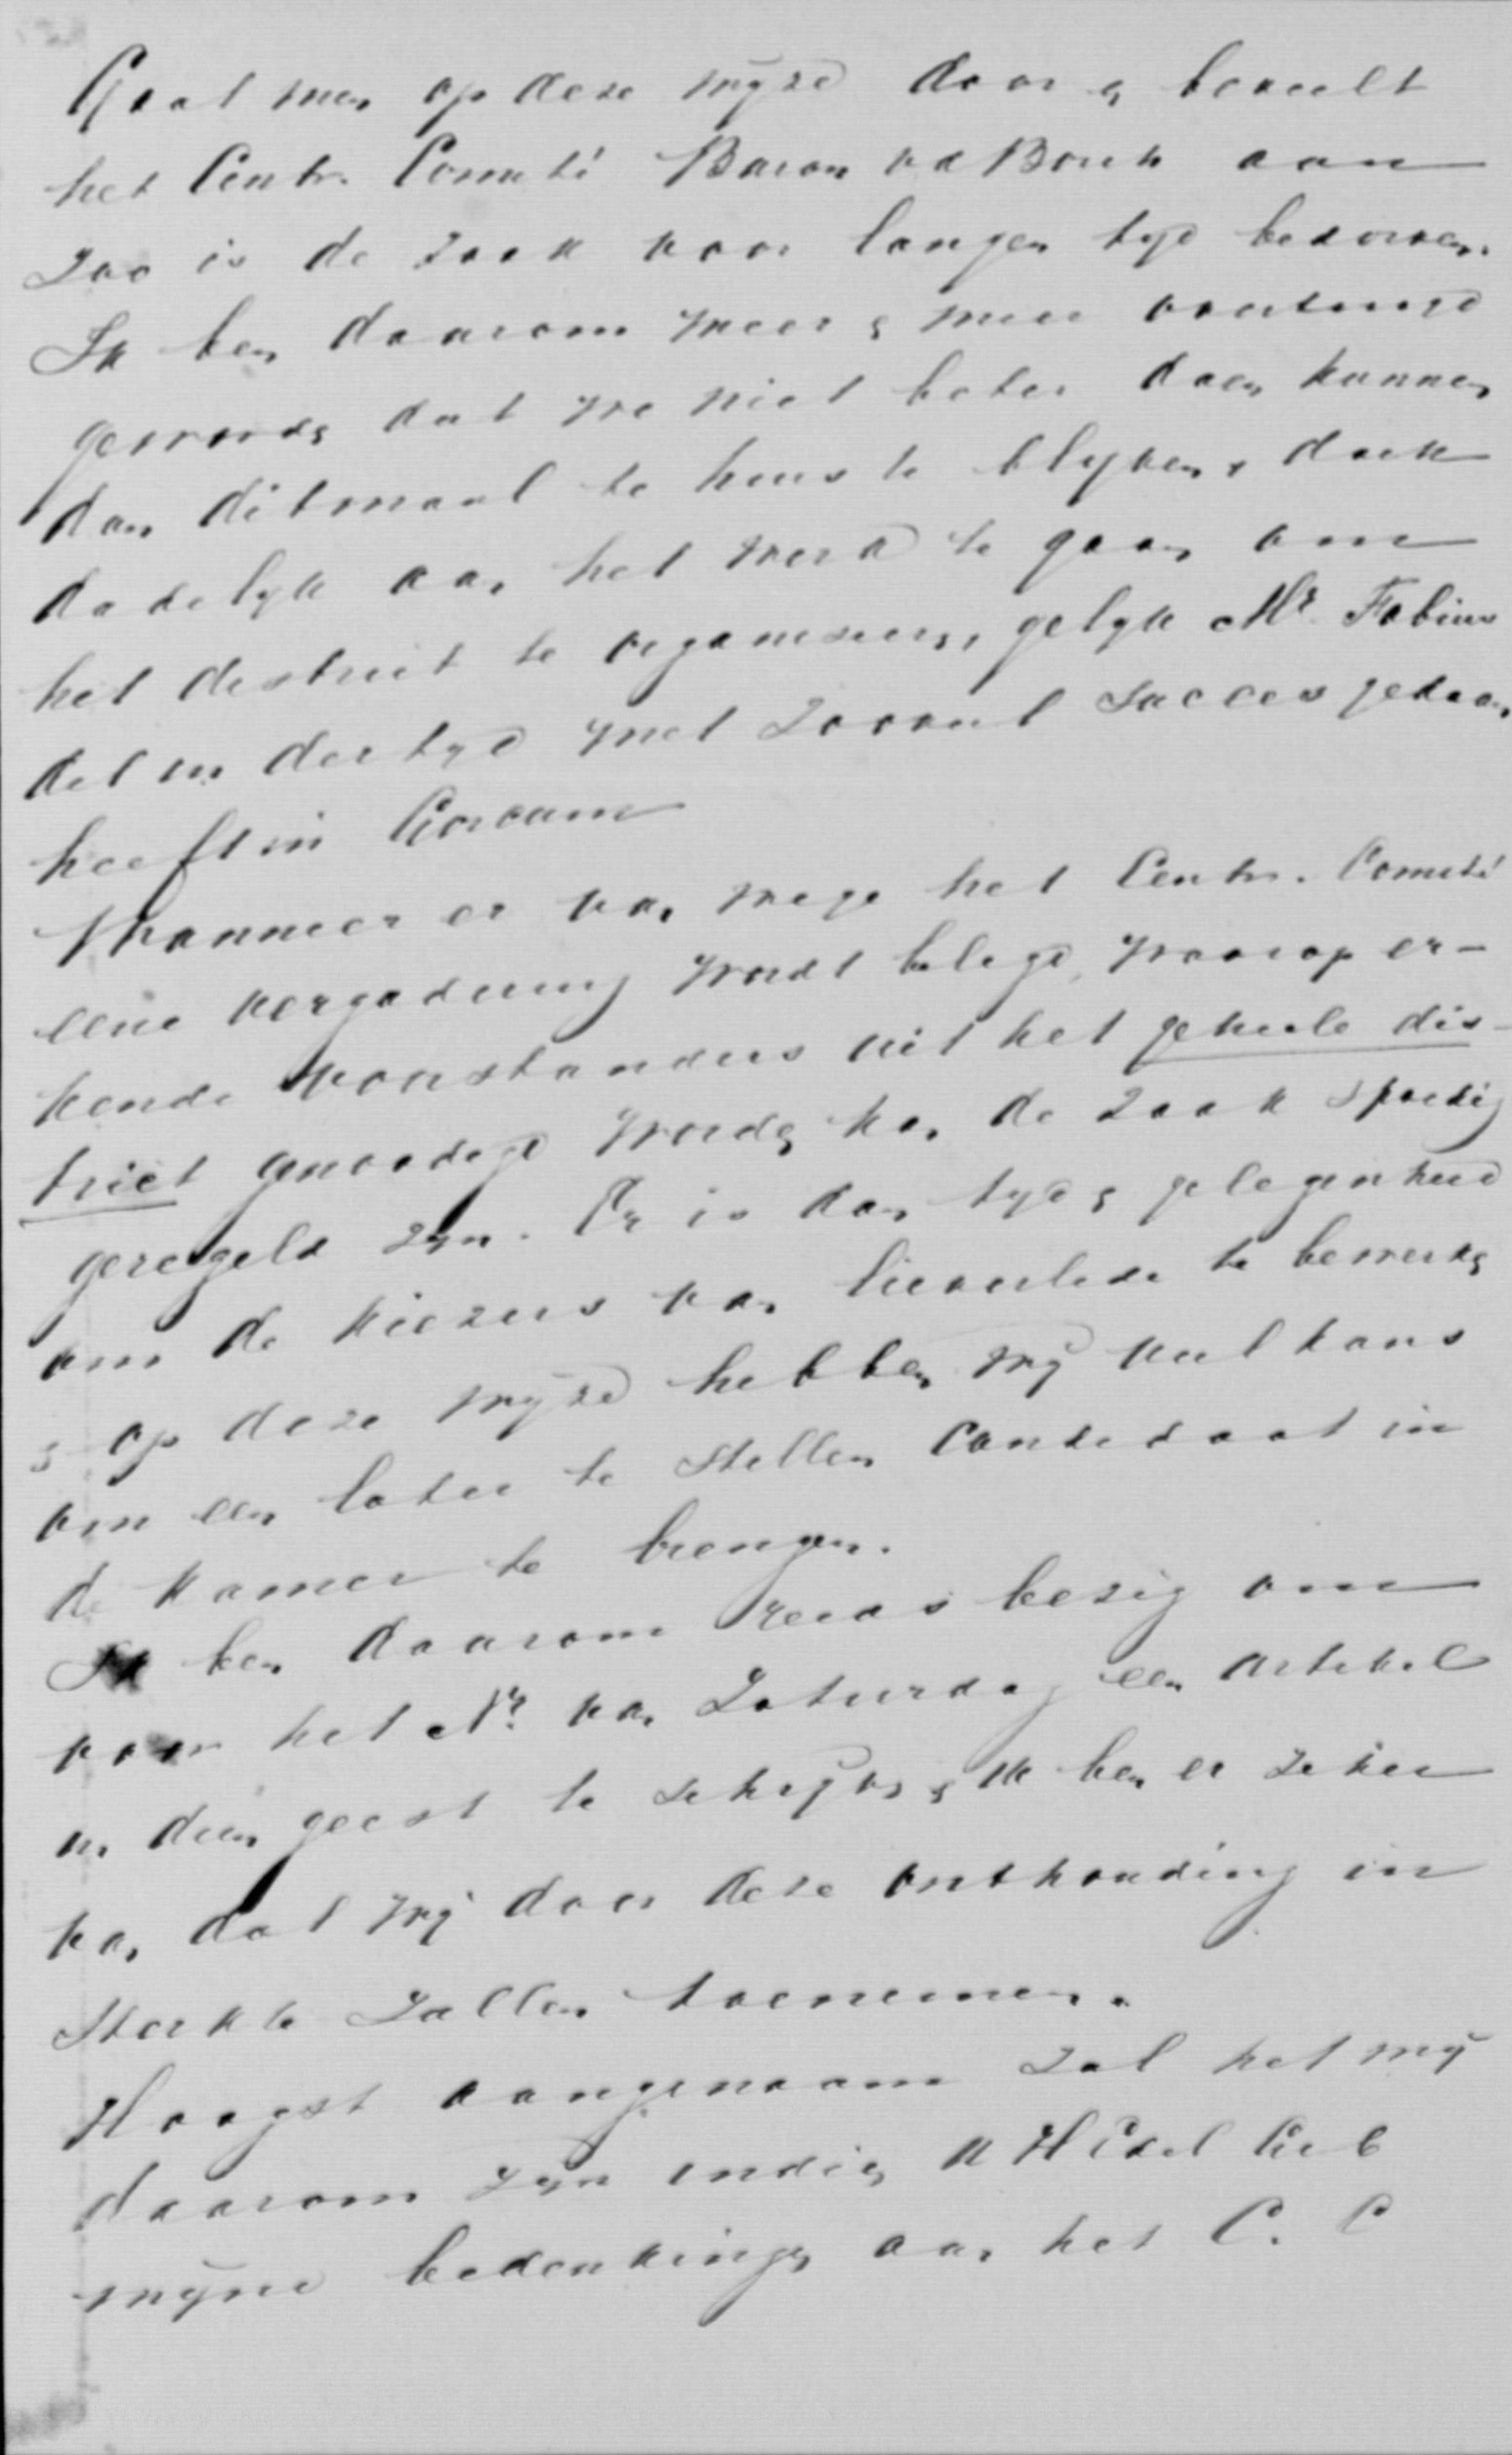 Gaat men op deze wijze door & beveelt
het Centr. Comité Baron vd Borch aan
zoo is de zaak voor langen tijd bedorven.
Ik ben daarom meer & meer overtuigd
geworden dat we niet beter doen kunnen
dan ditmaal te huis te blijven, doch
dadelijk aan het werk te gaan om
het district te organiseeren, gelijk Mr. Fabius
dat in der tijd met zooveel succes gedaan
heeft in Gorcum
Wanneer er van wege het Centr. Comité
eene vergadering wordt belegd, waarop er-
kende voorstanders uit het geheele dis-
trict genoodigd worden kan de zaak spoedig
geregeld zijn. Er is dan tijd & gelegenheid
om de kiezers van lieverlede te bewerken
& op deze wijze hebben wij veel kans
om een later te stellen Candidaat in
de Kamer te brengen.
Ik ben daarom reeds bezig om
voor het Nr. van Zaturdag een artikel
in dien geest te schrijven & ik ben er zeker
van dat wij door deze onthouding in
sterkte zullen toenemen.
Hoogst aangenaam zal het mij
daarom zijn indien UHEdel Geb
mijne bedenkingen aan het C. C